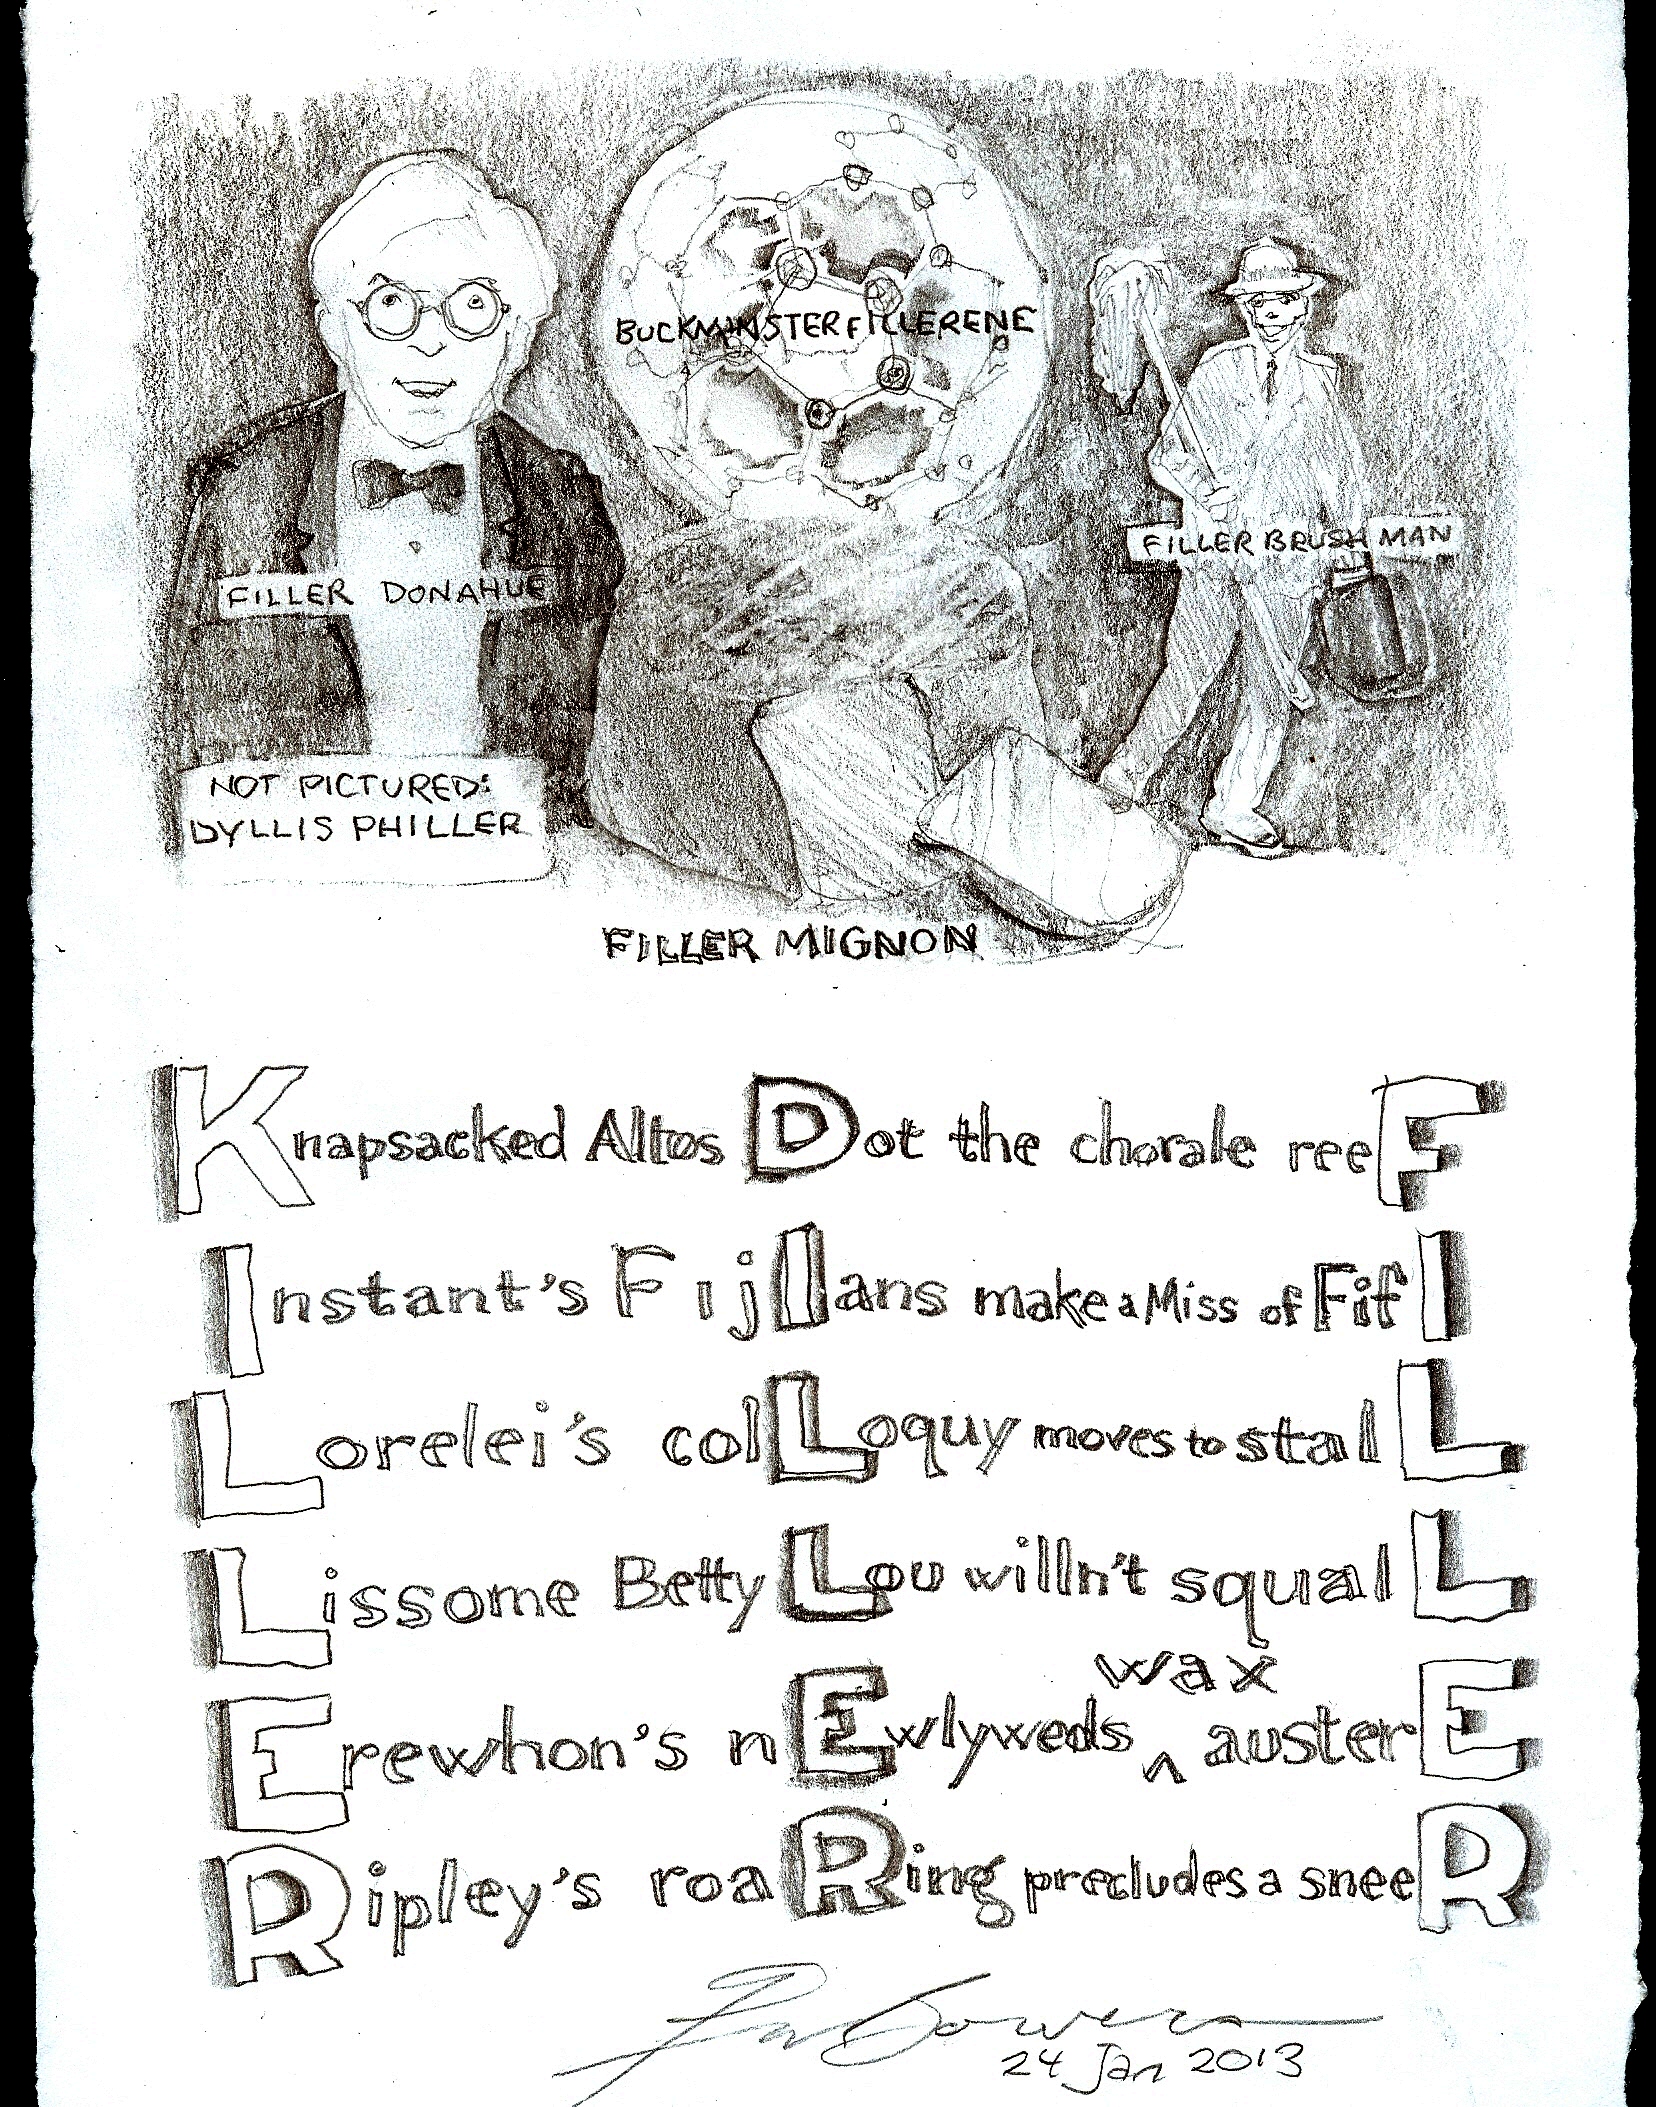 BUCKMINSTERFILLERENE
FILLER BRUSH MAN
FILLER DONAHUE
NOT PICTURED:
DYLLIS PHILLER
FILLER MIGNON
Knapsacked Altos Dot the chorale reeF
Instant's FijIans make a Miss of FifI
Lorelei's colLoquy moves to stalL
Lissome Betty Lou willn't squalL
wax
Erewhon's nEwlyweds ^ austerE
Ripley's roaRing precludes a sneeR
Bowers
24 Jan 2013